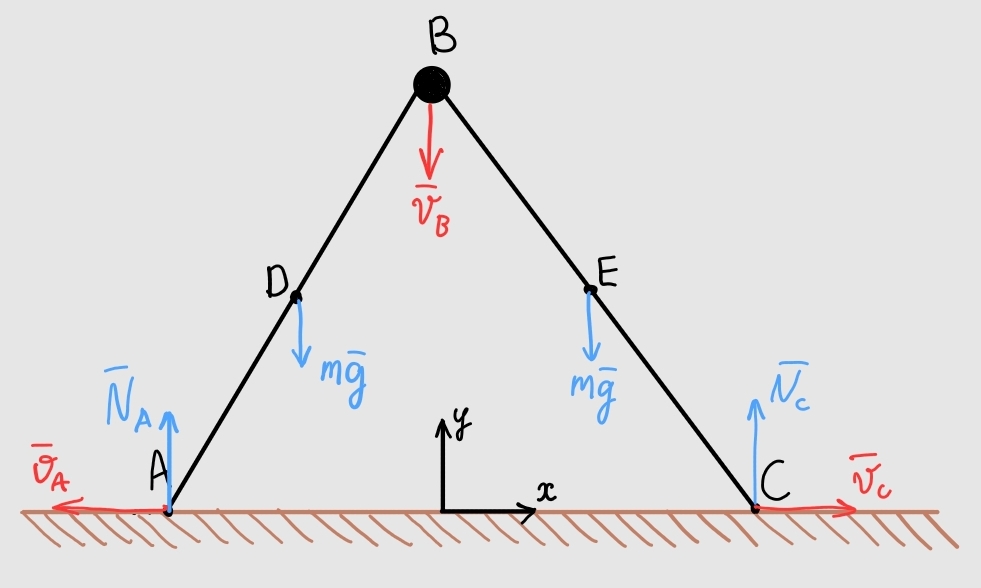 B
v̄_B
D
E
mḡ
mḡ
N̄_A
N̄_C
y
v̄_A
A
x
C
v̄_C